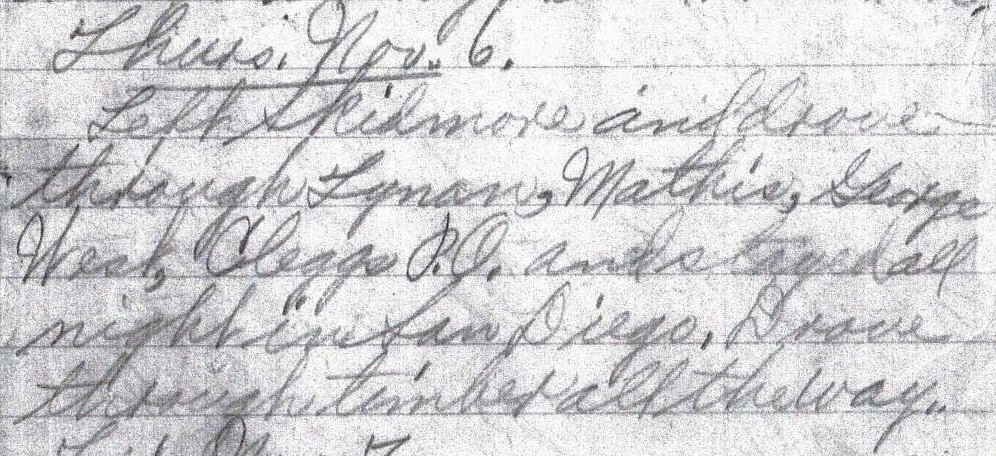 Thurs. Nov. 6.
Left Skidmore and drove
through Lynan, Mathis, George
West, Cleggs P.O. and stayed all
night in San Diego. Drove
through timber all the way.